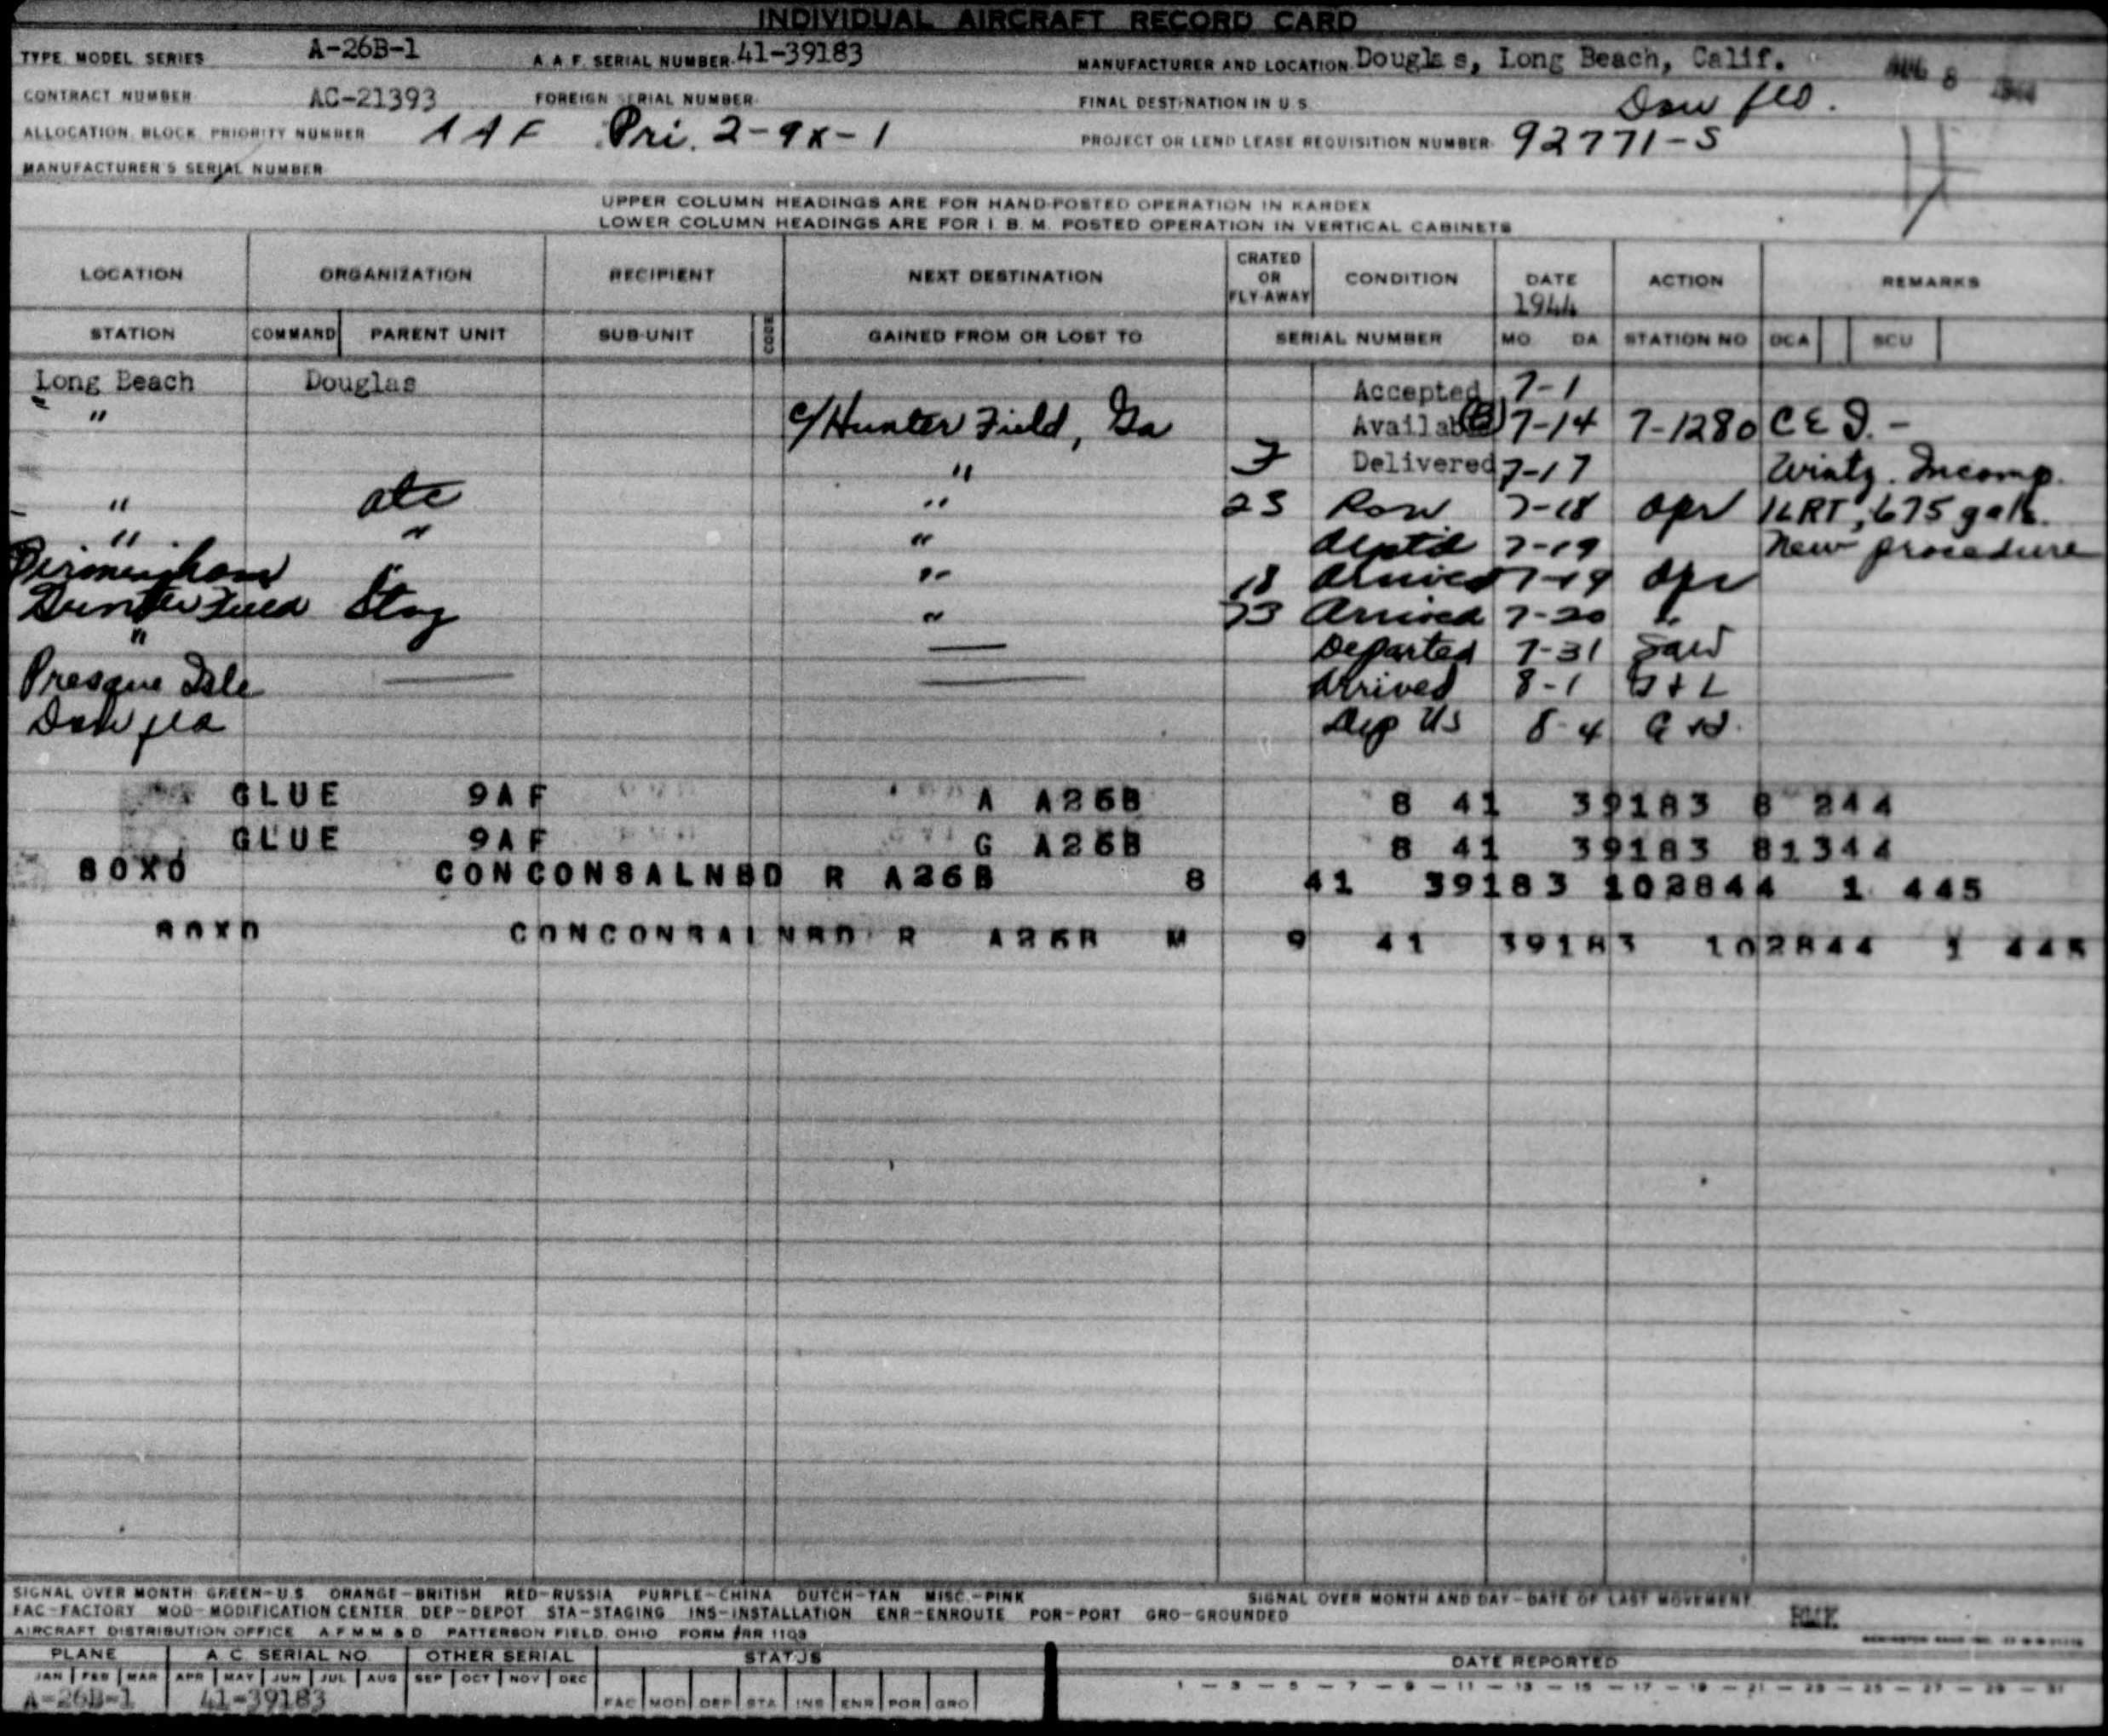 INDIVIDUAL AIRCRAFT RECORD CARD
TYPE MODEL SERIES A-26B-1 A.A.F. SERIAL NUMBER 41-39183 MANUFACTURER AND LOCATION Douglas, Long Beach, Calif. AUG 8
CONTRACT NUMBER AC-21393 FOREIGN SERIAL NUMBER FINAL DESTINATION IN U.S. Dow fld.
ALLOCATION, BLOCK, PRIORITY NUMBER AAF Pri. 2-9X-1 PROJECT OR LEND LEASE REQUISITION NUMBER 92771-S
MANUFACTURER'S SERIAL NUMBER
UPPER COLUMN HEADINGS ARE FOR HAND-POSTED OPERATION IN KARDEX
LOWER COLUMN HEADINGS ARE FOR I. B. M. POSTED OPERATION IN VERTICAL CABINETS
LOCATION ORGANIZATION RECIPIENT NEXT DESTINATION CRATED OR FLY-AWAY CONDITION DATE 1944 ACTION REMARKS
STATION COMMAND PARENT UNIT SUB-UNIT CODE GAINED FROM OR LOST TO SERIAL NUMBER MO DA STATION NO DCA SCU
Long Beach Douglas Accepted 7-1
" c/Hunter Field, Ga Available (B) 7-14 7-1280 C E D. -
" F Delivered 7-17 Wintz. Incomp.
" atc " 23 Row 7-18 Opr 675 gals.
" " " Deptd 7-19 New procedure
Birmingham " " 18 Arrived 7-19 Opr
Hunter Field Stag " 73 Arrived 7-20 "
" — Departed 7-31
Presque Isle — — Arrived 8-1
Dow fld Dep US 8-4
GLUE 9AF A A26B 8 41 39183 8 244
GLUE 9AF G A26B 8 41 39183 81344
SOXO CONCONSALNBD R A26B 8 41 39183 102844 1 445
SOXO CONCONSALNBD R A26B M 9 41 39183 102844 1 445
SIGNAL OVER MONTH GREEN-U.S. ORANGE-BRITISH RED-RUSSIA PURPLE-CHINA DUTCH-TAN MISC.-PINK SIGNAL OVER MONTH AND DAY-DATE OF LAST MOVEMENT
FAC-FACTORY MOD-MODIFICATION CENTER DEP-DEPOT STA-STAGING INS-INSTALLATION ENR-ENROUTE POR-PORT GRO-GROUNDED
AIRCRAFT DISTRIBUTION OFFICE A.F.M.M.&D. PATTERSON FIELD, OHIO FORM ARR 1103
PLANE A. C. SERIAL NO. OTHER SERIAL STATUS DATE REPORTED
JAN FEB MAR APR MAY JUN JUL AUG SEP OCT NOV DEC 1 - 3 - 5 - 7 - 9 - 11 - 13 - 15 - 17 - 19 - 21 - 23 - 25 - 27 - 29 - 31
A-26B-1 41-39183 FAC MOD DEP STA INS ENR POR GRO